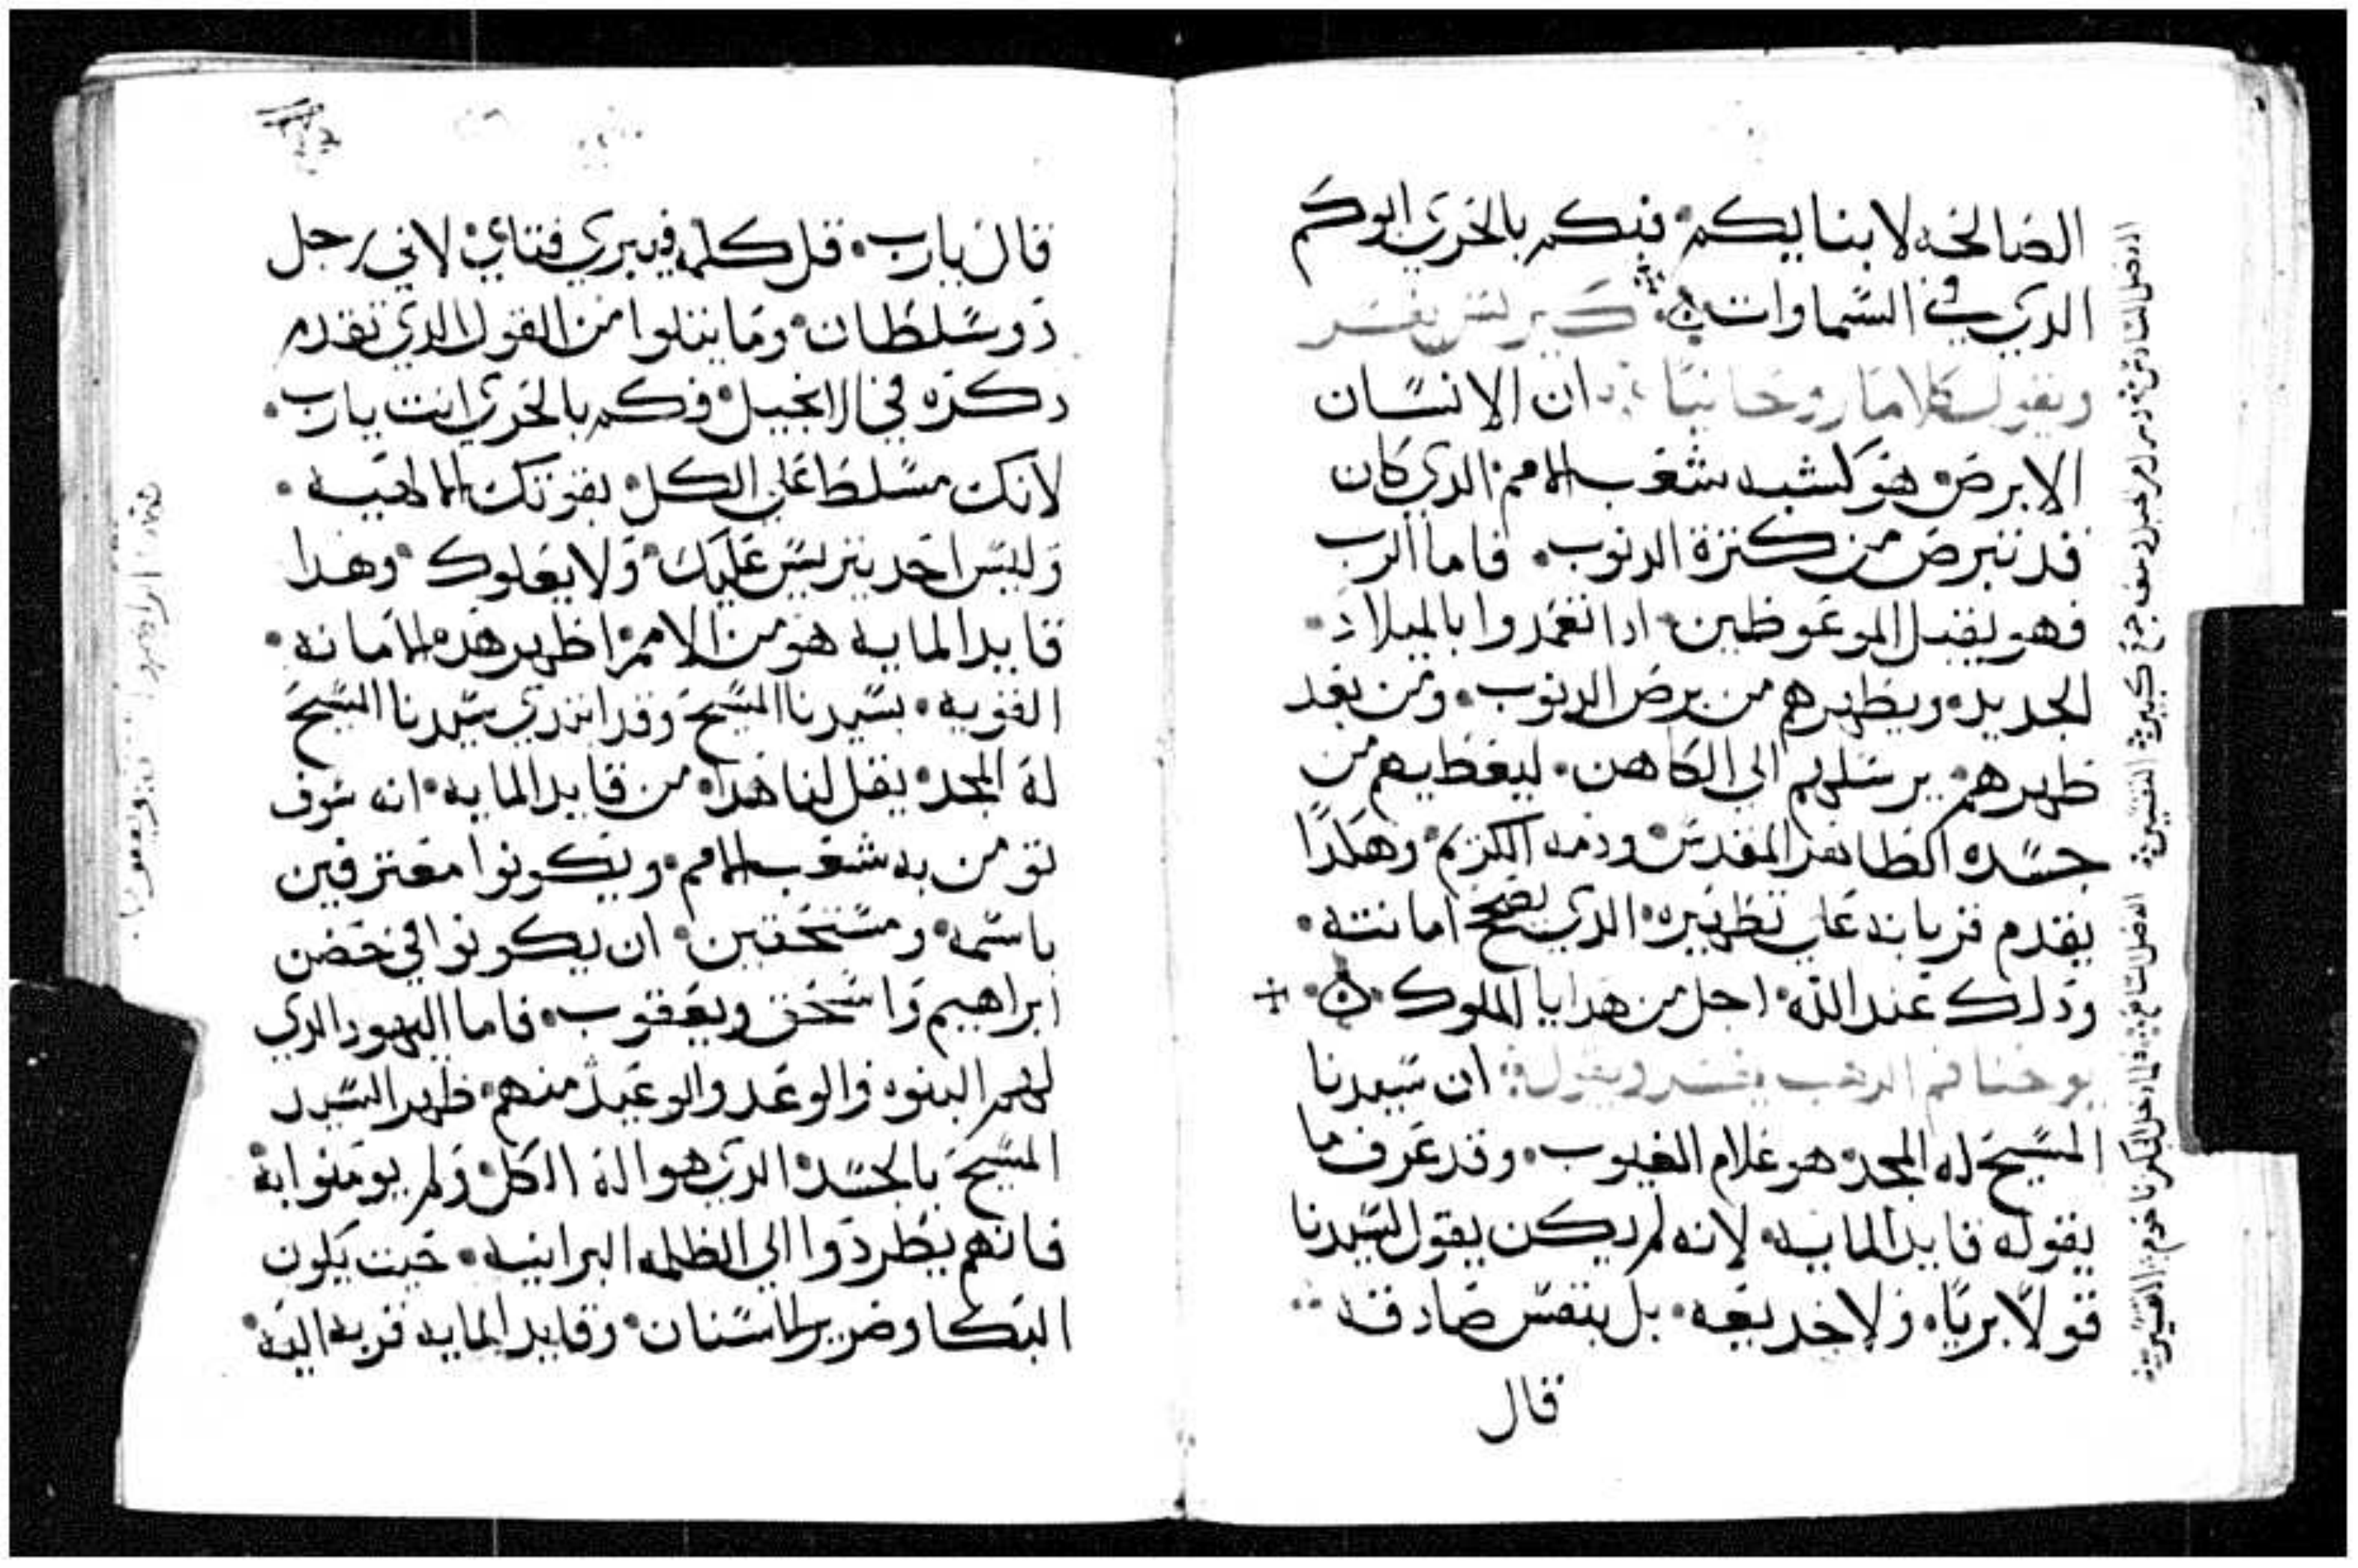 الصالحه لابنايكم فبكم بالحري ابوكم
الدي في السماوات كيرلس يفسر
ويقول كلاما روحانيا ان الانسان
الابرص هو كشبه شعب الامم الدي كان
قد تبرص من كترة الدنوب فاما الرب
فهو يقبل الموعوظين ادا تعمدوا بالميلاد
الجديد ويطهرهم من برص الدنوب ومن بعد
طهرهم يرسلهم الي الكاهن ليعطيهم من
جسده الطاهر المقدس ودمه الكريم وهكدا
يقدم قربانه علي تطهيره الدي يصحح امانته
ودلك عند الله اجل من هدايا الملوك
يوحنا فم الدهب يفسر ويقول ان سيدنا
المسيح له المجد هو علام الغيوب وقد عرف ما
يقوله قايد المايه لانه لم يكن يقول لسيدنا
قولا بريا ولا خديعه بل بنفس صادقه
قال
الفصل السابع فلما دخل كفرناحوم التفسير
قال يارب قل كلمه فيبري فتاي لاني رجل
دو سلطان وما يتلوا من القول الدي تقدم
دكره في الانجيل فكم بالحري انت يارب
لانك مسلط علي الكل بقوتك الالهيه
وليس احد يتريس عليك ولا يعلوك وهدا
قايد المايه هو من الامم اظهر هده الامانه
القويه بسيدنا المسيح وقد اندري سيدنا المسيح
له المجد يقل لنا هدا من قايد المايه انه سوف
تومن به شعب الامم ويكونوا معترفين
باسمه ومستحقين ان يكونوا في حضن
ابراهيم واسحق ويعقوب فاما اليهود الدي
لهم البنوه والوعد والوعيد منهم ظهر السيد
المسيح بالجسد الدي هو اله الكل ولم يومنوا به
فانهم يطردوا الي الظلمه البرانيه حيت يكون
البكا وضرير الاسنان وقايد المايه قربه اليه